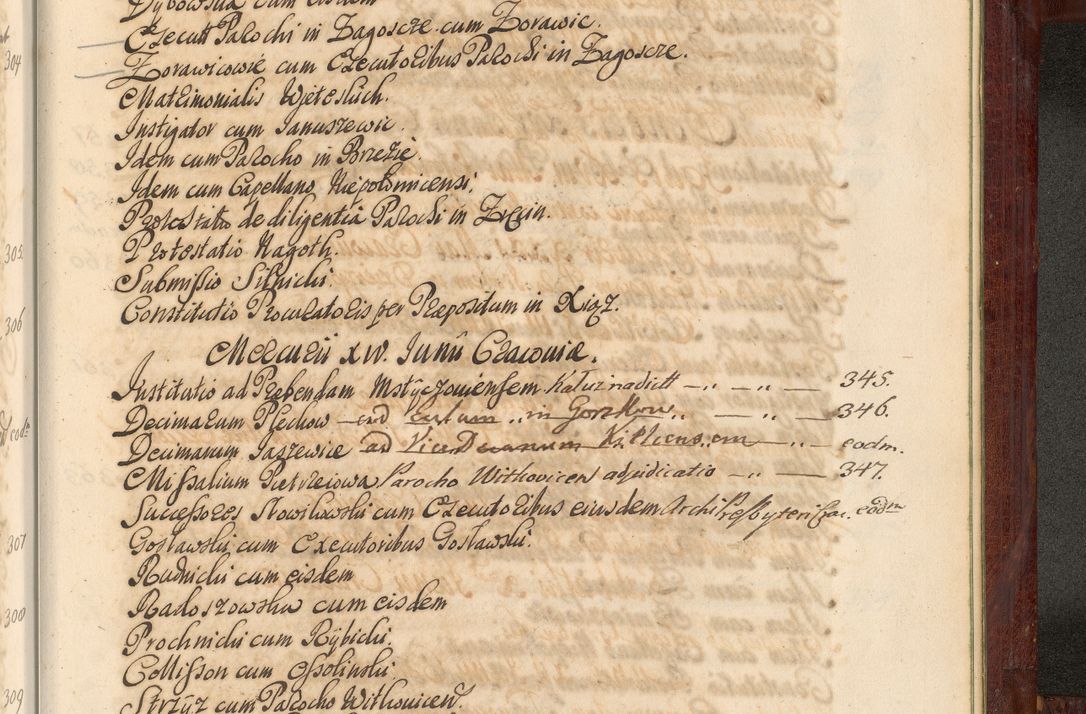 Dybowska cum eisdem
Execut Parochi in Zagoscze cum Zorawic.
Zorawicowie cum Executoribus Parochi in Zagoscze.
Matrimonialis
Instigator cum Januszewic.
Idem cum Parocho in Porzezie.
Idem cum Capellano Niepolomicensi.
Protestatio de diligentia Parochi in
Protestatio Nagoth.
Submissio Silnichi.
Constitutio Procuratoris per Praepositum in Xiąz.
Mercurii XIV. Junii Cracoviae.
Institutio ad Praebendam Mstyczoviensem 345.
Decimarum Plechow in Gorzkow 346.
Decimarum Jaszewice ad ViceDecanum eodm.
Missalium Pietrzeiowa Parocho Witkovicen adjudicatio 347.
Successores Nowilwski cum Executoribus eiusdem ArchiPresbyteri eodm
Goslawski cum Executoribus Goslawski.
Rudnicki cum eisdem
Radoszowska cum eisdem
Prochnicki cum Rybicki.
Collisson cum Ossolinski.
Strzyz cum Parocho Witkovicen
304
305.
306
307
300
309